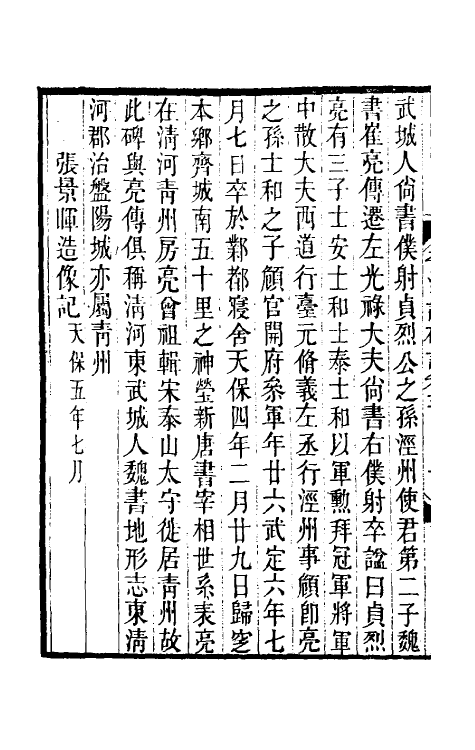 武城人尙書僕射貞烈公之孫涇州使君第二子魏
書崔亮傳遷左光祿大夫尙書右僕射卒諡曰貞烈
亮有三子士安士和士泰士和以軍勳拜冠軍將軍
中散大夫西道行臺元脩義左丞行涇州事頠卽亮
之孫士和之子頠官開府叅軍年廿六武定六年七
月七日卒於鄴都寢舍天保四年二月廿九日歸窆
本鄕齊城南五十里之神塋新唐書宰相世系表亮
在淸河靑州房亮曾祖輯宋泰山太守徙居靑州故
此碑與亮傳俱稱淸河東武城人魏書地形志東淸
河郡治盤陽城亦屬靑州
張景暉造像記天保五年七月